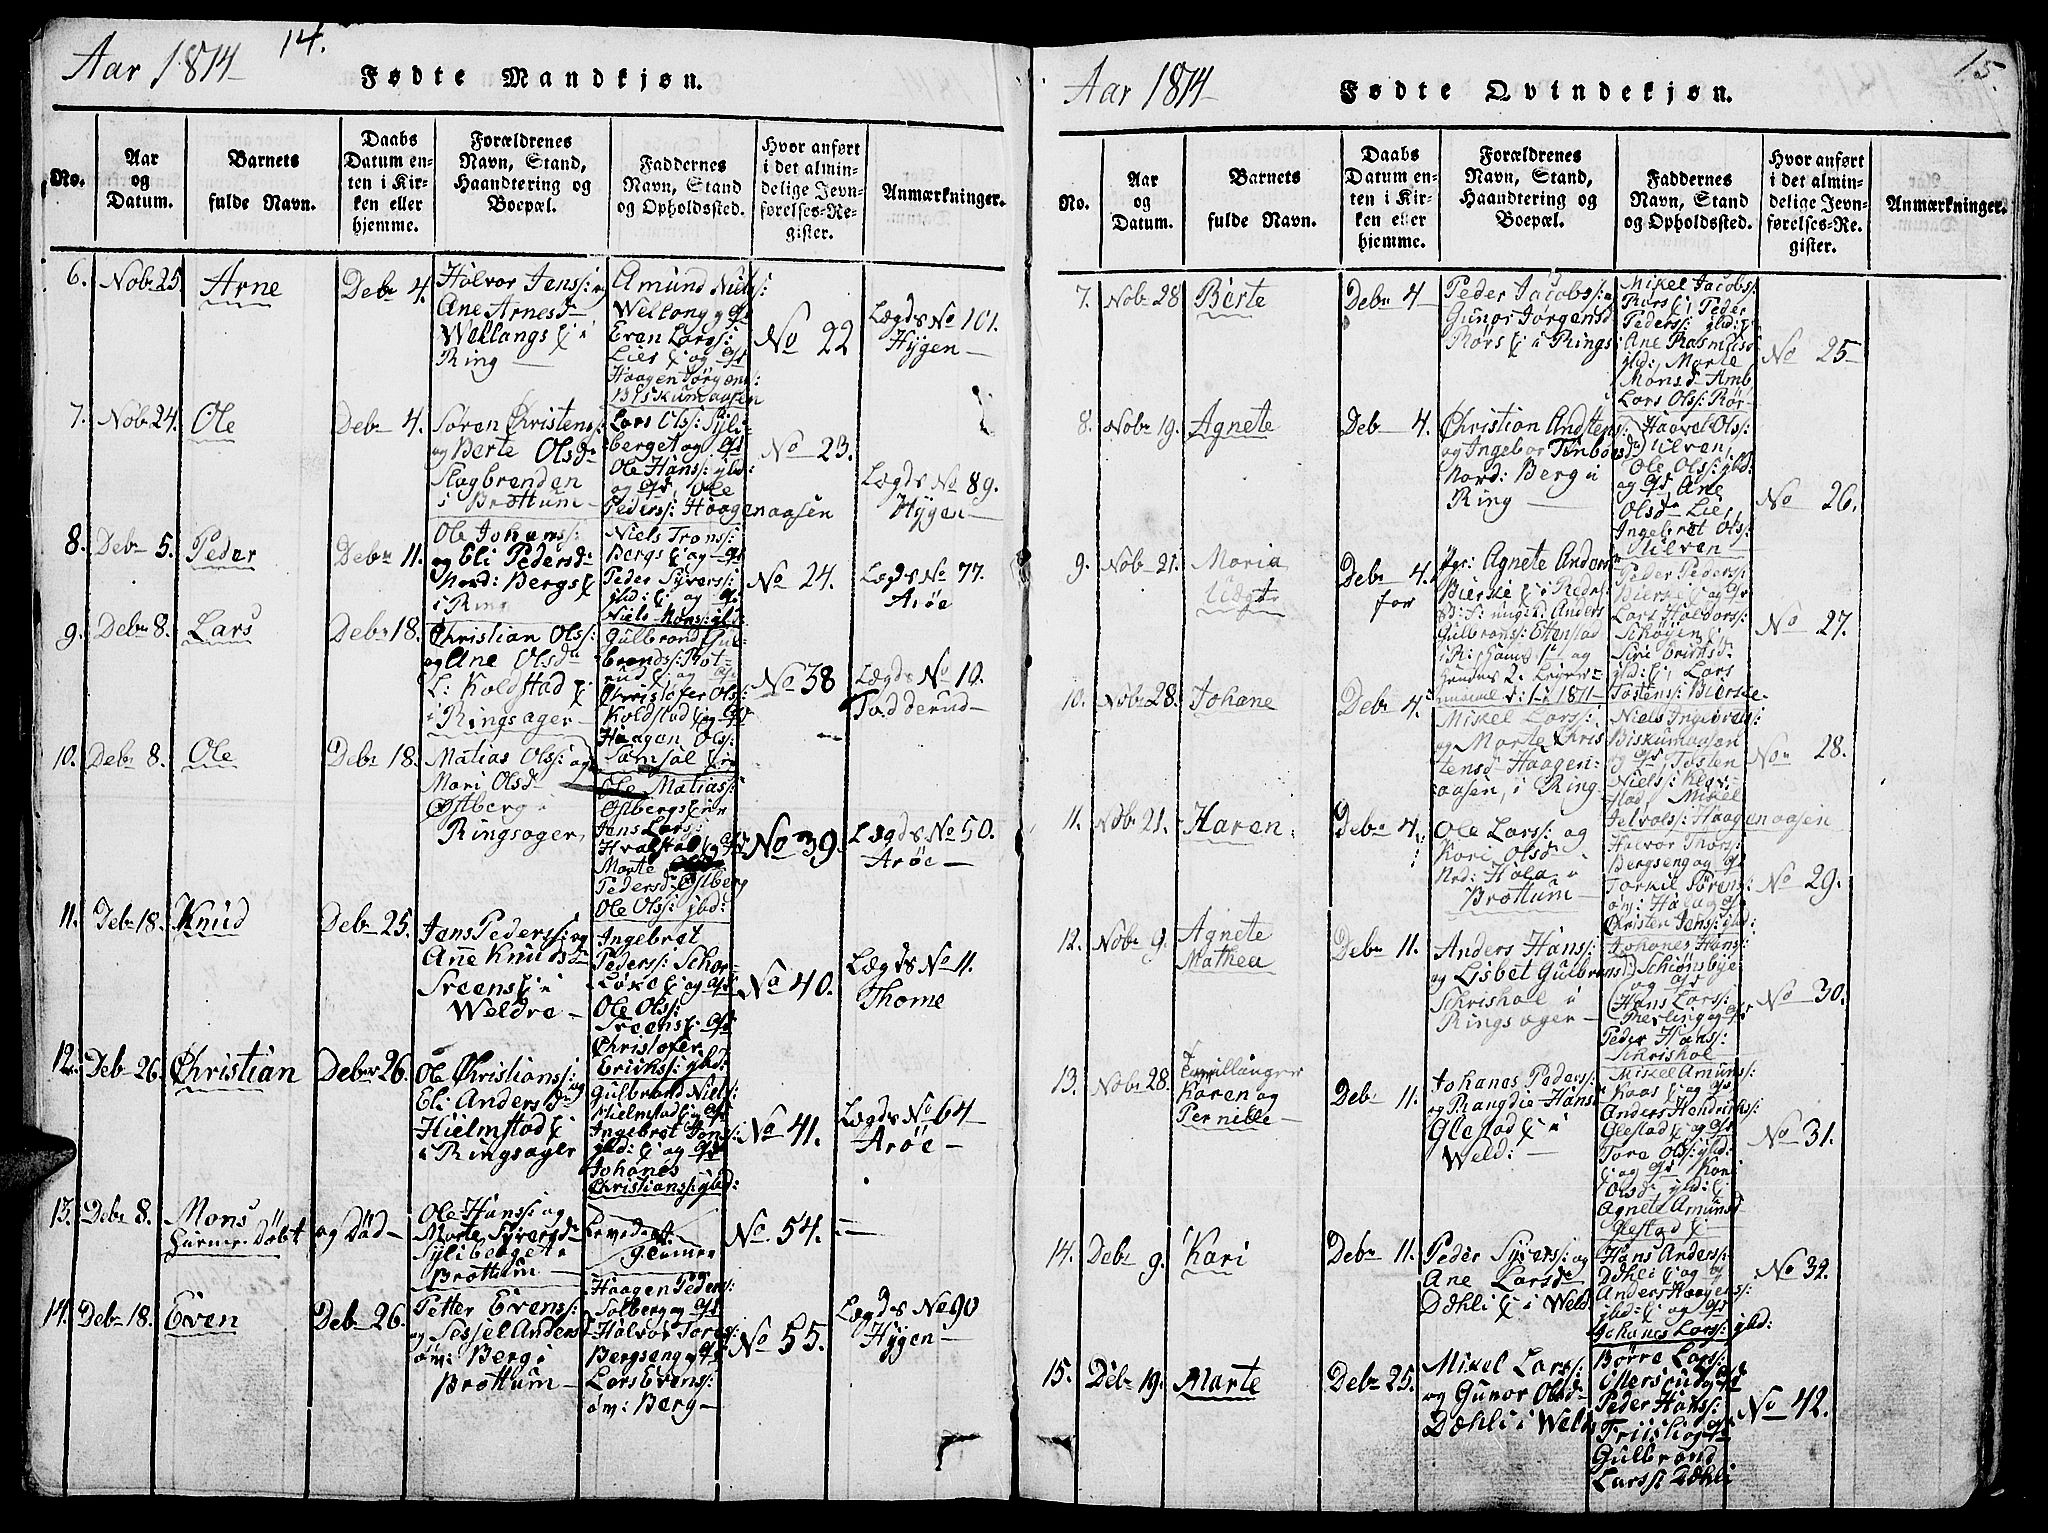 Aar 1814
14.
Fødte Mandkjøn.
No.
Aar
og
Datum.
Barnets
fulde Navn.
Daabs
Datum en-
ten i Kir-
ken eller
hjemme.
Forældrenes
Navn, Stand,
Haandtering og
Boepæl.
Faddernes
Navn, Stand
og Opholdssted.
Hvor anført
i det almin-
delige Jevn-
førelses-Re-
gister.
Anmærkninger.
6.
Nobr 25
Arne
Debr 4.
Halvor Jenss: og
Ane Arnesdr
Wellangs E i
Ring
Amund Niels:
Wellang og qs
Even Larss:
Lier E og qs
Haagen Jörgens:
Biskumaasen
No 22
Lægds No 101.
Hygen
7.
Nobr 24.
Ole
Debr 4.
Sören Christens:
og Berte Olsdr
Slagbrenden
i Brøttum
Lars Olss: Syli-
berget og qs
Ole Hanss: ibd:
og qs, Ole
Pederss: Haagenaasen
No 23.
Lægds No 89.
Hygen
8.
Debr 5.
Peder
Debr 11.
Ole Johanss:
og Eli Pedersdr
Nord: Bergs E
i Ring
Niels Tronss:
Bergs E og qs
Peder Syverss:
ibd: E og q.
Niels Monss: ibd:
No 24.
Lægds No 77.
Aröe
9.
Debr 8.
Lars
Debr 18.
Christian Olss:
og Ane Olsdr
L: Koldstad E
i Ringsager
Gulbrand Gul-
brands: Rot-
rud E og qs
Christofer Olss:
Koldstad E og qs
Haagen Olss:
Samsal E
No 38
Lægds No 10.
Fodderud
10.
Debr 8.
Ole
Debr 18.
Matias Olss: og
Mari Olsdr
Østberg i
Ringsager
Ole Matiass:
Østbergs E
Jens Larss:
Hvalstad E og qs
Marte
Pedersdr Østberg
Ole Olss: ibd:
No 39.
Lægds No 50.
Aröe
11.
Debr 18.
Knud
Debr 25.
Jens Pederss: og
Ane Knudsdr
Sreens E i
Weldre
Ingebret
Pederss: Schar-
löke E og qs
Ole Olss:
Sreens E qs
Christofer
Erickss: ibd:
No 40.
Lægds No 11.
Thome
12.
Debr 26.
Christian
Debr 26.
Ole Christianss: og
Eli Andersdr
Hielmstad E
i Ringsager
Gulbrand Niels:
Hielmstad E qs
Ingebret Jens:
ibd: E og qs
Johanes
Christianss: ibd:
No 41.
Lægds No 64
Aröe
13.
Debr 8.
Mons
hiemedöbt
og Död
Ole Hanss: og
Marte Syversdr
Syliberget i
Brøttum
No 54.
14.
Debr 18.
Even
Debr 26.
Petter Evenss:
og Sessel Andersdr
öm: Berg i
Brøttum
Haagen Peders:
Solberg og qs
Halvor Tores:
Bergseng og qs
Lars Evens:
öm: Berg
No 55.
Lægds No 90
Hygen
Aar 1814
15.
Fødte Qvindekjøn.
No.
Aar
og
Datum.
Barnets
fulde Navn.
Daabs
Datum en-
ten i Kir-
ken eller
hjemme.
Forældrenes
Navn, Stand,
Haandtering og
Boepæl.
Faddernes
Navn, Stand
og Opholdssted.
Hvor anført
i det almin-
delige Jevn-
førelses-Re-
gister.
Anmærkninger.
7.
Nobr 28
Berte
Debr 4
Peder Jacobss: og
Gunor Jorgensd
Rörs E i Rings:
Mikel Jacobs:
Rörs E Peder
Pederss: ibd: E
Ane Rasmusd
ibd: Marte
Monsdr Amb
Lars Olss: Rör
No 25
8.
Nobr 19.
Agnete
Debr 4.
Christian Andstens:
og Ingebor Tinborsdr
Nord: Berg i
Ring
Haavel Olss:
Ulven,
Ole Olss: ibd:
og qs Ane
Olsdr Lie,
Ingebret Olss:
Ulven
No 26.
9.
Nobr 21.
Maria
Uægt
Debr 4.
for
Pge: Agnete Anders
Bierke E i Reders:
Bd: F: ungk: Anders
Gulbrans: Ettestad
Peder Peders:
Bierke E og qs
Lars Halvorss:
Schogen E
Siri Erichsdr
ibd: E, Lars
Tostens: Bierke
No 27.
10.
Nobr 28.
Johane
Debr 4.
Mikel Larss:
og Marte Chris
tensdr Haagen-
aasen, i Ring
Niels Ingebrets:
Biskumaasen
og qs Tosten
Niels:
Mikel
Jetvolss: Haagenaasen
No 28.
11.
Nobr 21.
Karen
Debr 4.
Ole Larss: og
Kari Olsdr
Nrd: Hola i
Brøttum
Halvor Thors:
Bergseng og qs
Torkil Sörens:
öm: Hola og qs
Christen Jens: ibd
No 29.
12.
Nobr 9.
Agnete
Mathea
Debr 11.
Anders Hans:
og Lisbet Gulbrans
Schrishol i
Ringsager
Johanes Hans:
Schiönsbye
og qs
Hans Larss:
Præsling og qs
Peder Hans:
Schrishol
No 30.
13.
Nobr 28.
Tvillinger
Karen og
Pernille
Debr 11.
Johanes Peders:
og Rangdie Hans
Glestad E i
Weld:
Mikel Amunds:
Kaas E og qs
Anders Hendrikss:
Glestad E og qs
Tore Olss: ibd
E og qs Kari
Olsdr ibd: E
Agnete Amunsd
Glestad E
No 31.
14.
Debr 9.
Kari
Debr 11.
Peder Syvers: og
Ane Larsdr
Dæhli E i Weld
Hans Anders:
Dæhli E og qs
Anders Haagens:
ibd: E og qs
Johanes Larss: ibd:
No 32.
15.
Debr 19.
Marte
Debr 25.
Mikel Larss:
og Gunor Olsdr
Dæhli i Weld
Börre Larss:
Ollersrud og qs
Peder Hans:
Friisli og qs
Gulbrand
Larss: Dæhli
No 42.